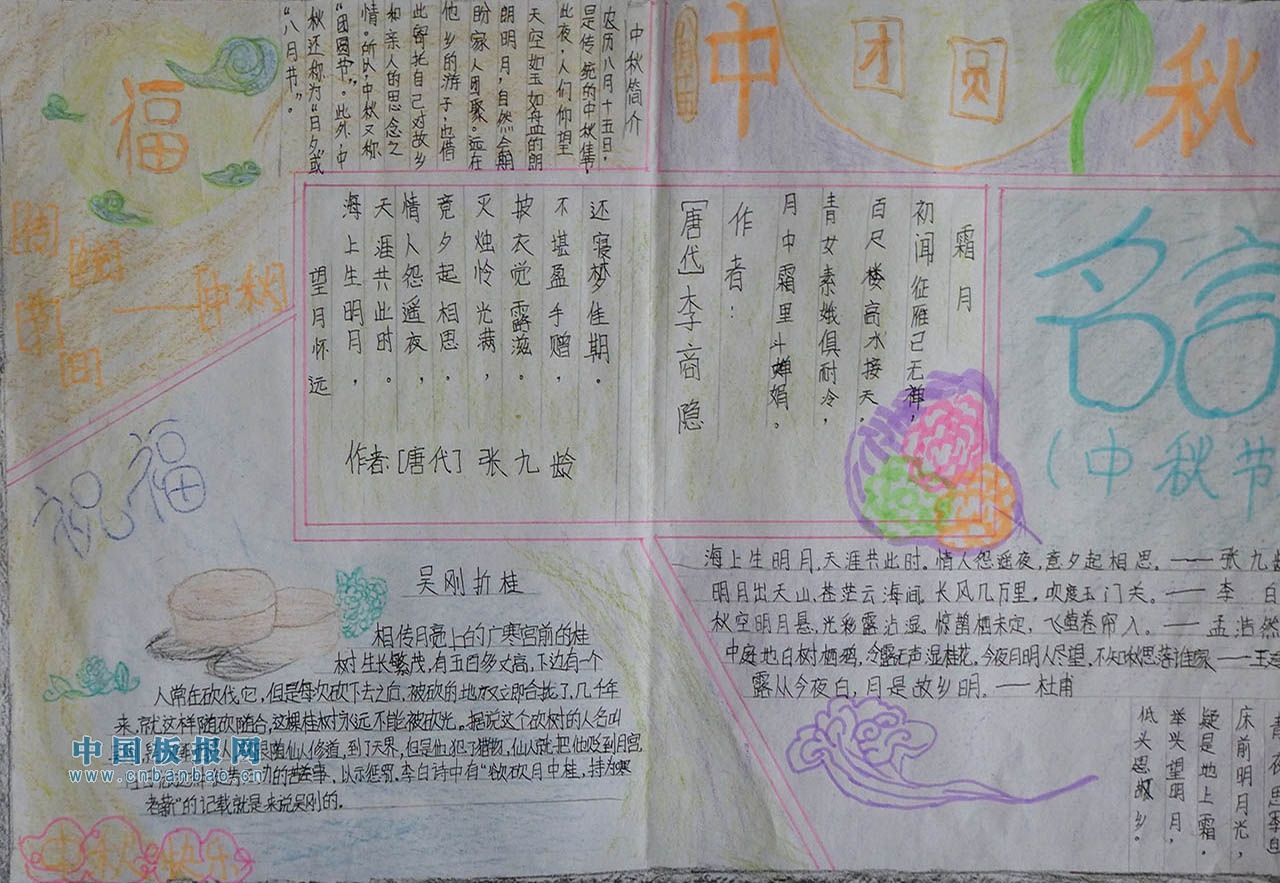 中
团
圆
秋
福
中秋简介
农历八月十五日，
是传统的中秋佳节，
此夜，人们仰望
天空如玉如盘的朗
朗明月，自然会期
盼家人团聚。远在
他乡的游子，也借
此寄托自己对故乡
和亲人的思念之
情。所以，中秋又称
“团圆节”。此外，中
秋还称为“日夕”或
“八月节”。
中秋
间
霜月
初闻征雁已无禅，
百尺楼高水接天，
青女素娥俱耐冷，
月中霜里斗婵娟。
作者：
[唐代]李商隐
望月怀远
海上生明月，
天涯共此时。
情人怨遥夜，
竟夕起相思。
灭烛怜光满，
披衣觉露滋。
不堪盈手赠，
还寝梦佳期。
作者:[唐代] 张九龄
名言
(中秋节
海上生明月,天涯共此时.情人怨遥夜,意夕起相思.——张九龄
明月出天山,苍茫云海间.长风几万里,吹度玉门关.——李白
秋空明月悬,光彩露沾湿.惊鹊栖未定,飞萤卷帘入.——孟浩然
中庭地白树栖鸦,冷露无声湿桂花.今夜月明人尽望,不知秋思落谁家——王建
露从今夜白,月是故乡明.——杜甫
床前明月光，
疑是地上霜。
举头望明月，
低头思故乡。
祝福
吴刚折桂
相传月亮上的广寒宫前的桂
树生长繁茂,有五百多丈高,下边有一个
人常在砍伐它,但是每次砍下去之后,被砍的地方又立即合拢了,几千年
来,就这样随砍随合,这棵桂树永远不能被砍光。据说这个砍树的人名叫
跟随仙人修道,到了天界,但是他犯了错误,仙人就把他贬到月宫
的苦差事,以示惩罚.李白诗中有“欲砍月中桂,持为寒
者薪”的记载就是来说吴刚的.
中秋快乐
中国板报网
www.cnbanbao.cn